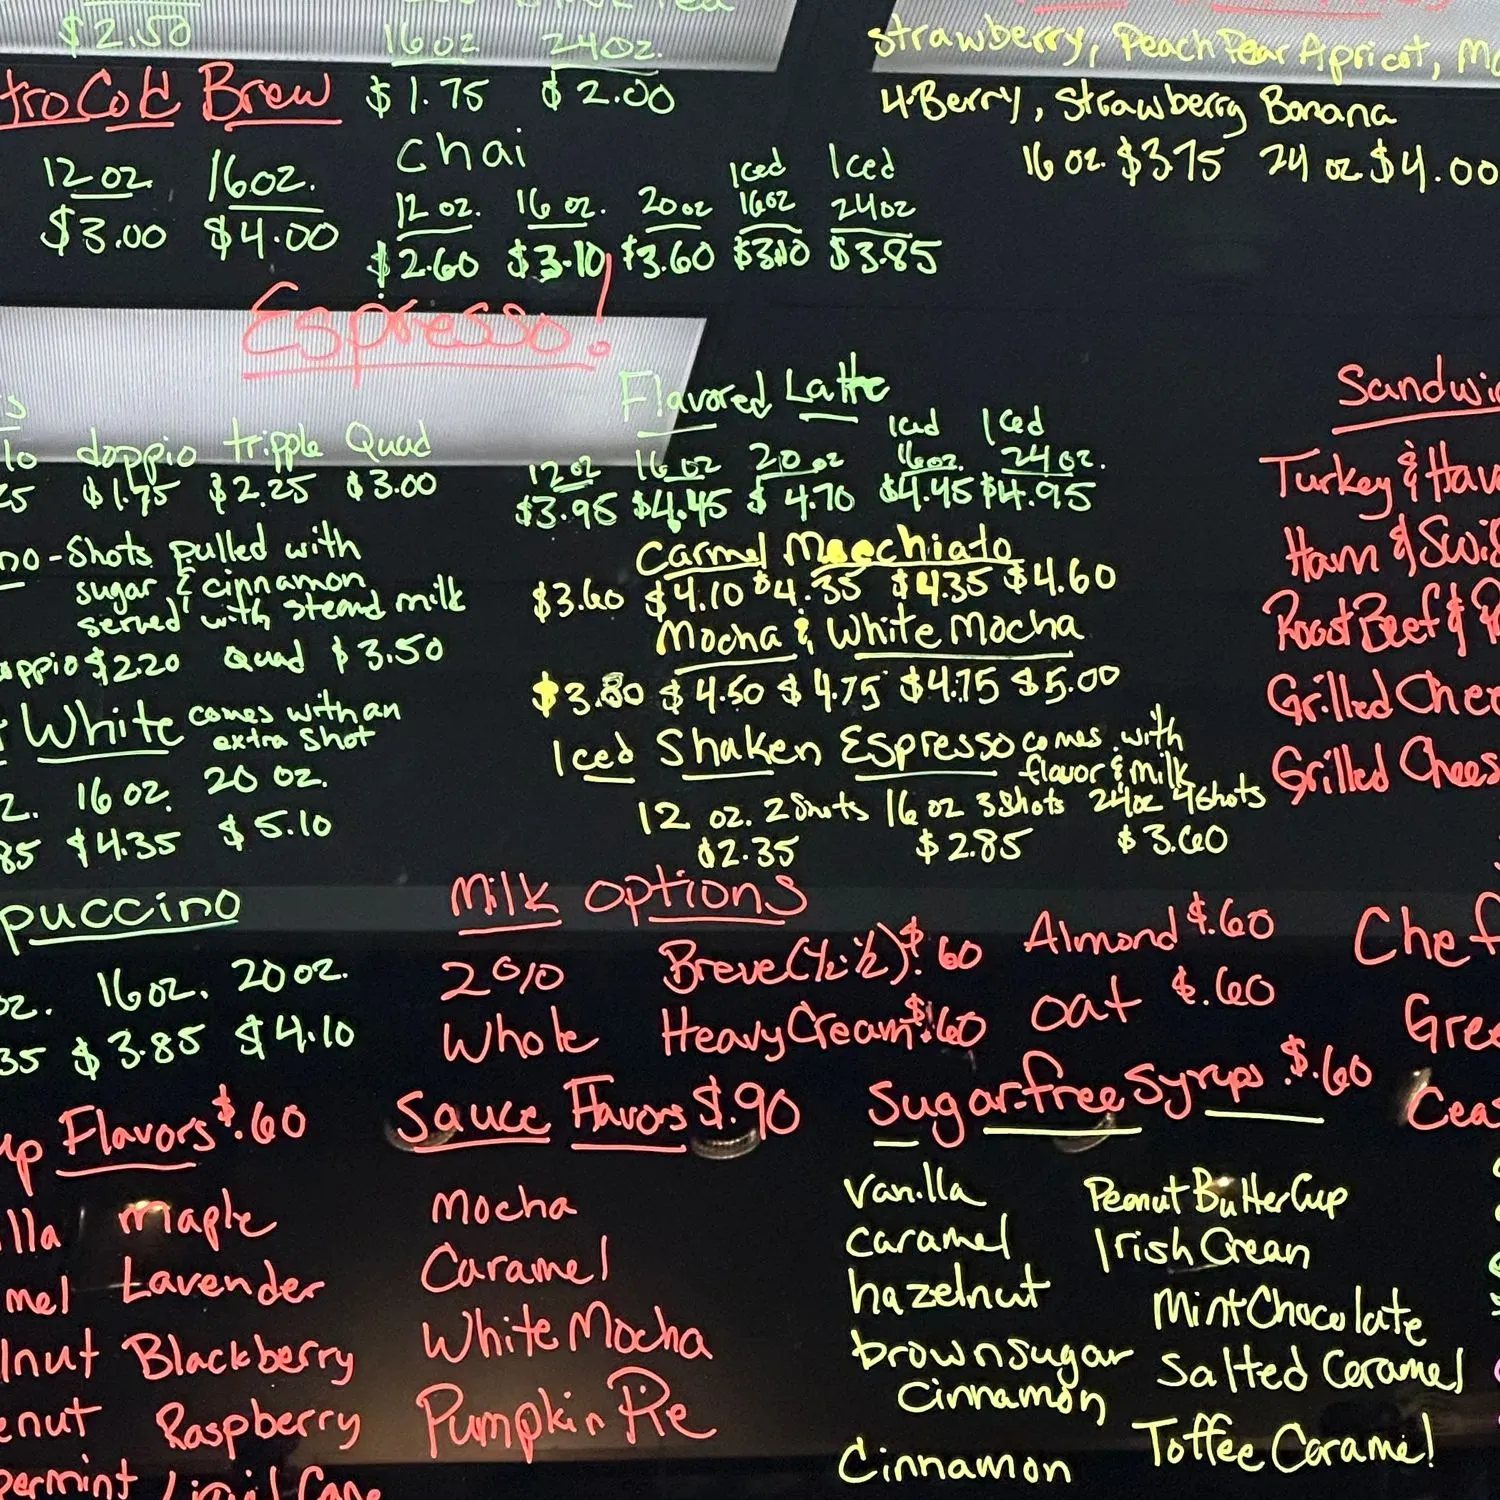 $2.50
16oz. 24oz.
$1.75 $2.00
Cold Brew
12 oz. 16oz.
$3.00 $4.00
Chai
Iced Iced
12 oz. 16 oz. 20oz 16oz 24oz
$2.60 $3.10 $3.60 $3.10 $3.85
strawberry, Peach Pear Apricot,
4-Berry, Strawberry Banana
16 oz. $3.75 24 oz $4.00
Espresso!
doppio tripple Quad
$1.75 $2.25 $3.00
-Shots pulled with
sugar & cinnamon
served with steamd milk
$2.20 Quad $3.50
White comes with an
extra shot
16 oz. 20 oz.
$4.35 $5.10
puccino
16oz. 20oz.
$3.85 $4.10
Flavored Latte
Iced Iced
12oz 16oz 20oz 16oz. 24oz.
$3.95 $4.45 $4.70 $4.45 $4.95
Carmel Macchiato
$3.60 $4.10 $4.35 $4.35 $4.60
Mocha & White Mocha
$3.80 $4.50 $4.75 $4.75 $5.00
Iced Shaken Espresso comes with
flavor & milk
12 oz. 2 Shots 16 oz 3 Shots 24oz 4 Shots
$2.35 $2.85 $3.60
Sandwi
Turkey & Hav
Ham & Swi
Roast Beef &
Grilled Chee
Grilled Chees
Milk Options
2% Breve (½ ½) $.60 Almond $.60
Whole Heavy Cream $.60 oat $.60
Chef
Gree
Ceas
Flavors $.60
Maple
Lavender
Blackberry
Raspberry
Sauce Flavors $.90
Mocha
Caramel
White Mocha
Pumpkin Pie
Sugar-free Syrups $.60
Vanilla
caramel
hazelnut
brownsugar
cinnamon
Cinnamon
Peanut Butter Cup
Irish Crean
Mint Chocolate
Salted Caramel
Toffee Caramel